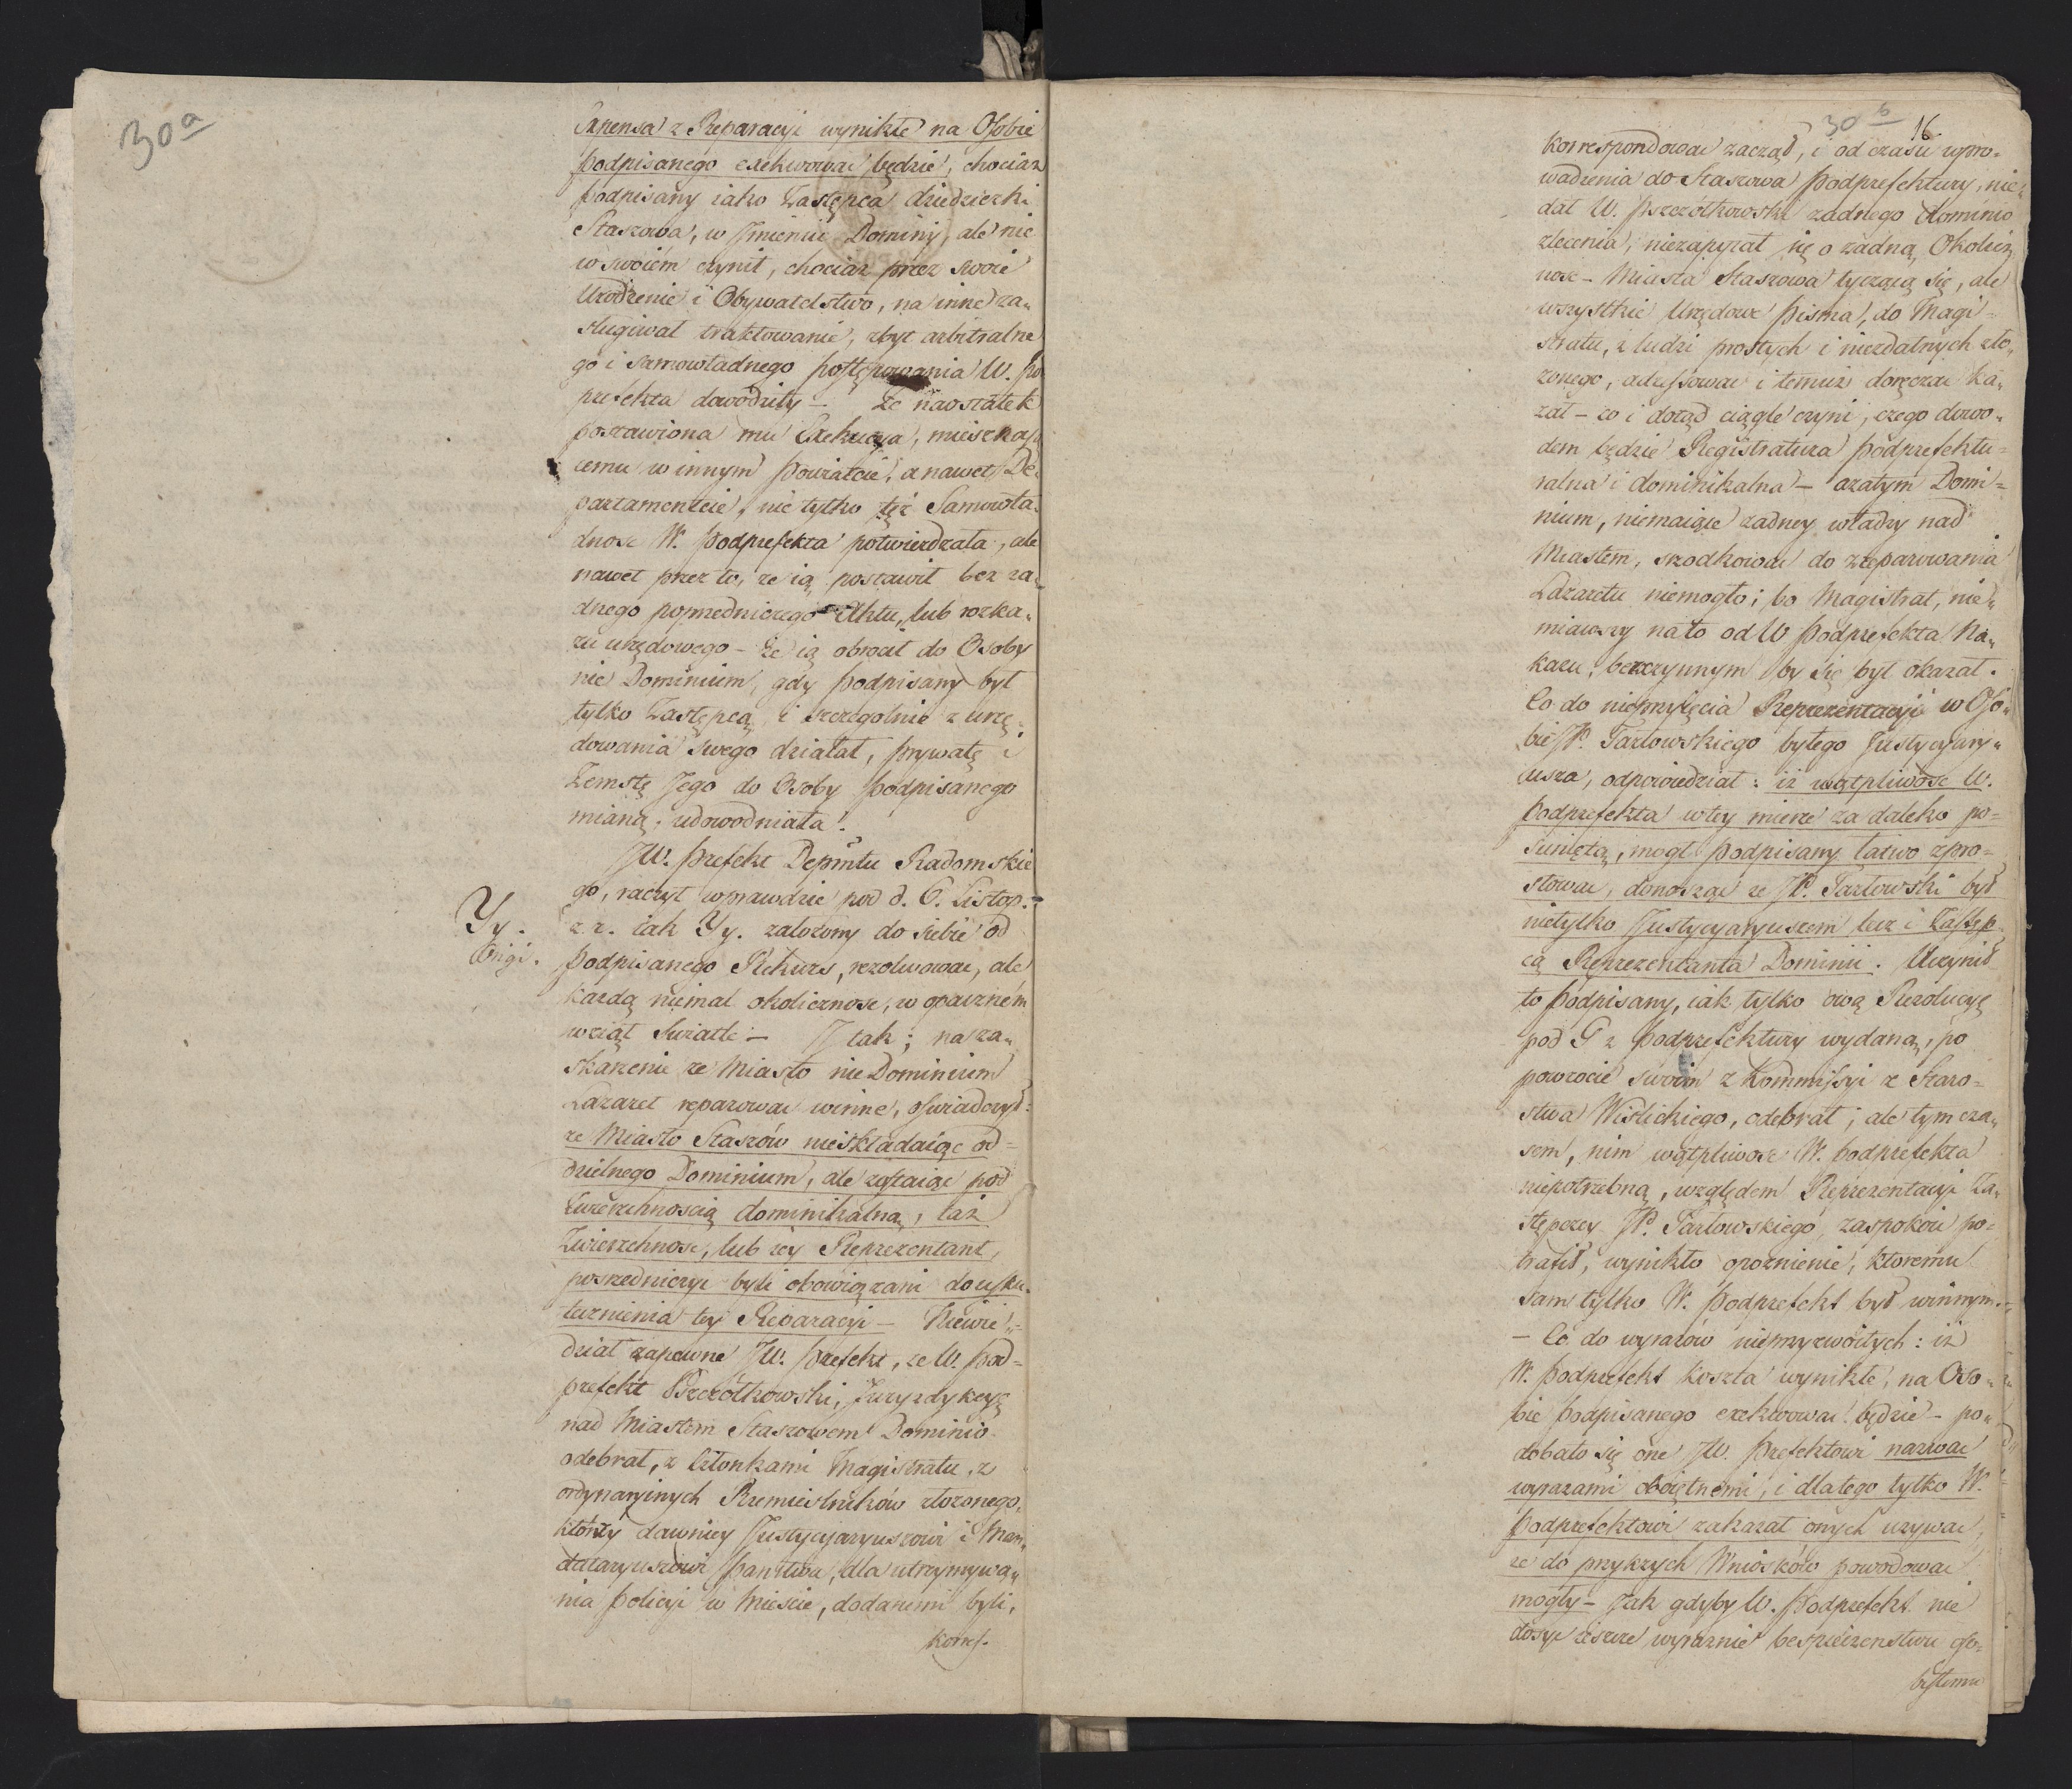 30a
Expensa z Reparacyi wynikłe na Osobie
podpisanego exekwować będzie, chociaż
podpisany iako Zastępca dziedziczki
Staszowa, w Imieniu Dominij, ale nie
w swoiém czynił, chociaż przez swoie
Urodzenie i Obywatelstwo, na inne za„
sługiwał traktowanie, zbyt arbitralne
go i samowładnego postępowania W. Po
prefekta dowodziły – Że naostatek
postawiona mu Exekucya, mieszkaią
cemu w innym Powiatcie, a nawet De„
partamentcie, nie tylko tęż Samowła„
dnosc W. Podprefekta potwierdzała, ale
nawet przez to, ze ią postawił bez ża„
dnego poprzedniczego Aktu, lub rozka„
zu urzędowego – że ią obrocił do Osoby
nie Dominium, gdy podpisany był
tylko Zastępcą, i szczegolnie z urzę„
dowania swego działał, prywatę i
Zemstę Jego do Osoby podpisanego
mianą, udowodniała.
JW. Prefekt Depmtu Radomskie
go, raczył wprawdzie pod d. 6. Listop.
z. r. iak Yy. założony do siebie od
Yy.
Origi.
podpisanego Rekurs, rezolwować, ale
każdą niemal okolicznosc, w opaczném
wziął Swiatle – I tak; na za„
skarzenie ze Miasto nie Dominium
Lazaret reparować winne, oswiadczył:
ze Miasto Staszów nieskładaiąc od=
dzielnego Dominium, ale zostaiąc pod
Zwierzchnoscią dominikalną, taż
Zwierzchnosc, lub iey Reprezentant,
posrzedniczyc byli obowiązani do usku„
tecznienia tey Reparacyi – Niewie„
dział zapewne JW. Prefekt, ze W. Pod=
prefekt Pszczółkowski, Juryzdykcyę
nad Miastem Staszowem Dominio
odebrał, z Członkami Magistratu, z
ordynaryinych Rzemieslników złożonego,
którzy dawniey Justycyaryuszowi i Man„
dataryuszowi Państwa, dla utrzymywa„
nia Policyi w Miescie, dodanemi byli,
korres.
30 b
16.
korrespondować zaczął, i od czasu wpro=
wadzenia do Staszowa Podprefektury, nie„
dał W. Pszczółkowski żadnego Dominio
zlecenia, niezapytał się o żadną Okolicz
nosc – Miasta Staszowa tyczącą się, ale
wszystkie Urzędowe Pisma, do Magi=
stratu, z ludzi prostych i niezdatnych zło„
żonego, adressować i temuż doręczać ka„
zał – co i dotąd ciągle czyni, czego dowo„
dem będzie Registratura Podprefektu=
ralna i dominikalna – azatym Domi=
nium, niemaiąc żadney władzy nad
Miastem, srzodkować do zreparowania
Lazaretu niemogło; bo Magistrat, nie„
miawszy na to od W Podprefekta Na„
kazu, bezczynnym by się był okazał.
Co do nieprzyięcia Reprezentacyi w Oso„
bie JP. Tarłowskiego byłego Justycyary„
usza, odpowiedział: iż wątpliwosc W.
Podprefekta w tey mierze za daleko po=
suniętą, mogł podpisany łatwo spro=
stować, donosząc ze JP. Tarłowski był
nietylko Justycyaryuszem lecz i Zastęp
cą Reprezentanta Dominii. Uczynił
to podpisany, iak tylko ową Rezolucyę
pod G z Podprefektury wydaną, po
powrocie swoim z Kommissyi z Staro=
stwa Wislickiego, odebrał; ale tym cza„
sem, nim wątpliwosc W. Podprefekta
niepotrzebną, względem Reprezentacyi Za„
stępczey JP. Tarłowskiego, zaspokoić po=
trafił, wynikło opoznienie, ktoremu
sam tylko W. Podprefekt był winnym.
– Co do wyrazów nieprzyzwoitych: iż
W. Podprefekt koszta wynikłe, na Oso„
bie podpisanego exekwować będzie – po„
dobało się one JW. Prefektowi nazwać
wyrazami oboiętnemi, i dlatego tylko W.
Podprefektowi zakazał onych używać,
ze do przykrych Wnioskow powodować
mogły – Jak gdyby W. Podprefekt nie
dosyc ieszcze wyraznie bespieczenstwu oso=
bistemu